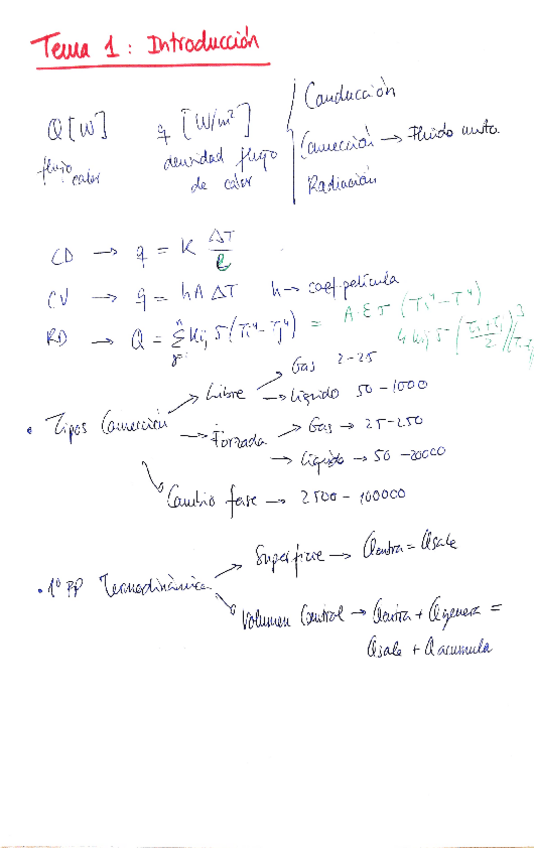 Tema 1: Introducción
Q [W] q [W/m²] Conducción
flujo calor densidad flujo de calor Convección → Fluido
Radiación
CD → q = K ΔT / e
CV → q = hA ΔT h → coef. película
RD → Q = Σ Kij σ (Ti⁴ - Tj⁴) = A·ε σ (Ti⁴ - T⁴)
4 Kij σ (Ti + Tj / 2)³
• Tipos Convección → Libre → Gas 2-25
→ líquido 50-1000
→ Forzada → Gas → 25-250
→ líquido → 50-20000
Cambio fase → 2500-100000
• 1º PP Termodinámica → Superficie → Qentra = Qsale
Volumen Control → Qentra + Qgenera =
Qsale + Qacumula